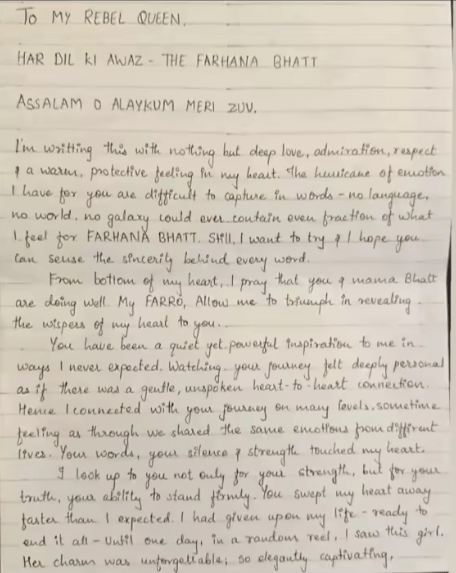 TO MY REBEL QUEEN,
HAR DIL KI AWAZ - THE FARHANA BHATT
ASSALAM O ALAYKUM MERI ZUV.
I'm writting this with nothing but deep love, admiration, respect
& a warm, protective feeling in my heart. The hurricane of emotion
I have for you are difficult to capture in words - no language,
no world, no galaxy could ever contain even fraction of what
I feel for FARHANA BHATT. Still, I want to try & I hope you
can sense the sincerity behind every word.
From bottom of my heart, I pray that you & mama Bhatt
are doing well. My FARRO, Allow me to triumph in revealing
the wispers of my heart to you..
You have been a quiet yet powerful inspiration to me in
ways I never expected. Watching your journey felt deeply personal
as if there was a gentle, unspoken heart-to-heart connection.
Hence I connected with your journey on many levels, sometime
feeling as through we shared the same emotions from different
lives. Your words, your silence & strength touched my heart.
I look up to you not only for your strength, but for your
truth, your ability to stand firmly. You swept my heart away
faster than I expected. I had given upon my life - ready to
end it all - Until one day, in a random reel, I saw this girl.
Her charm was unforgettable; so elegantly captivating,